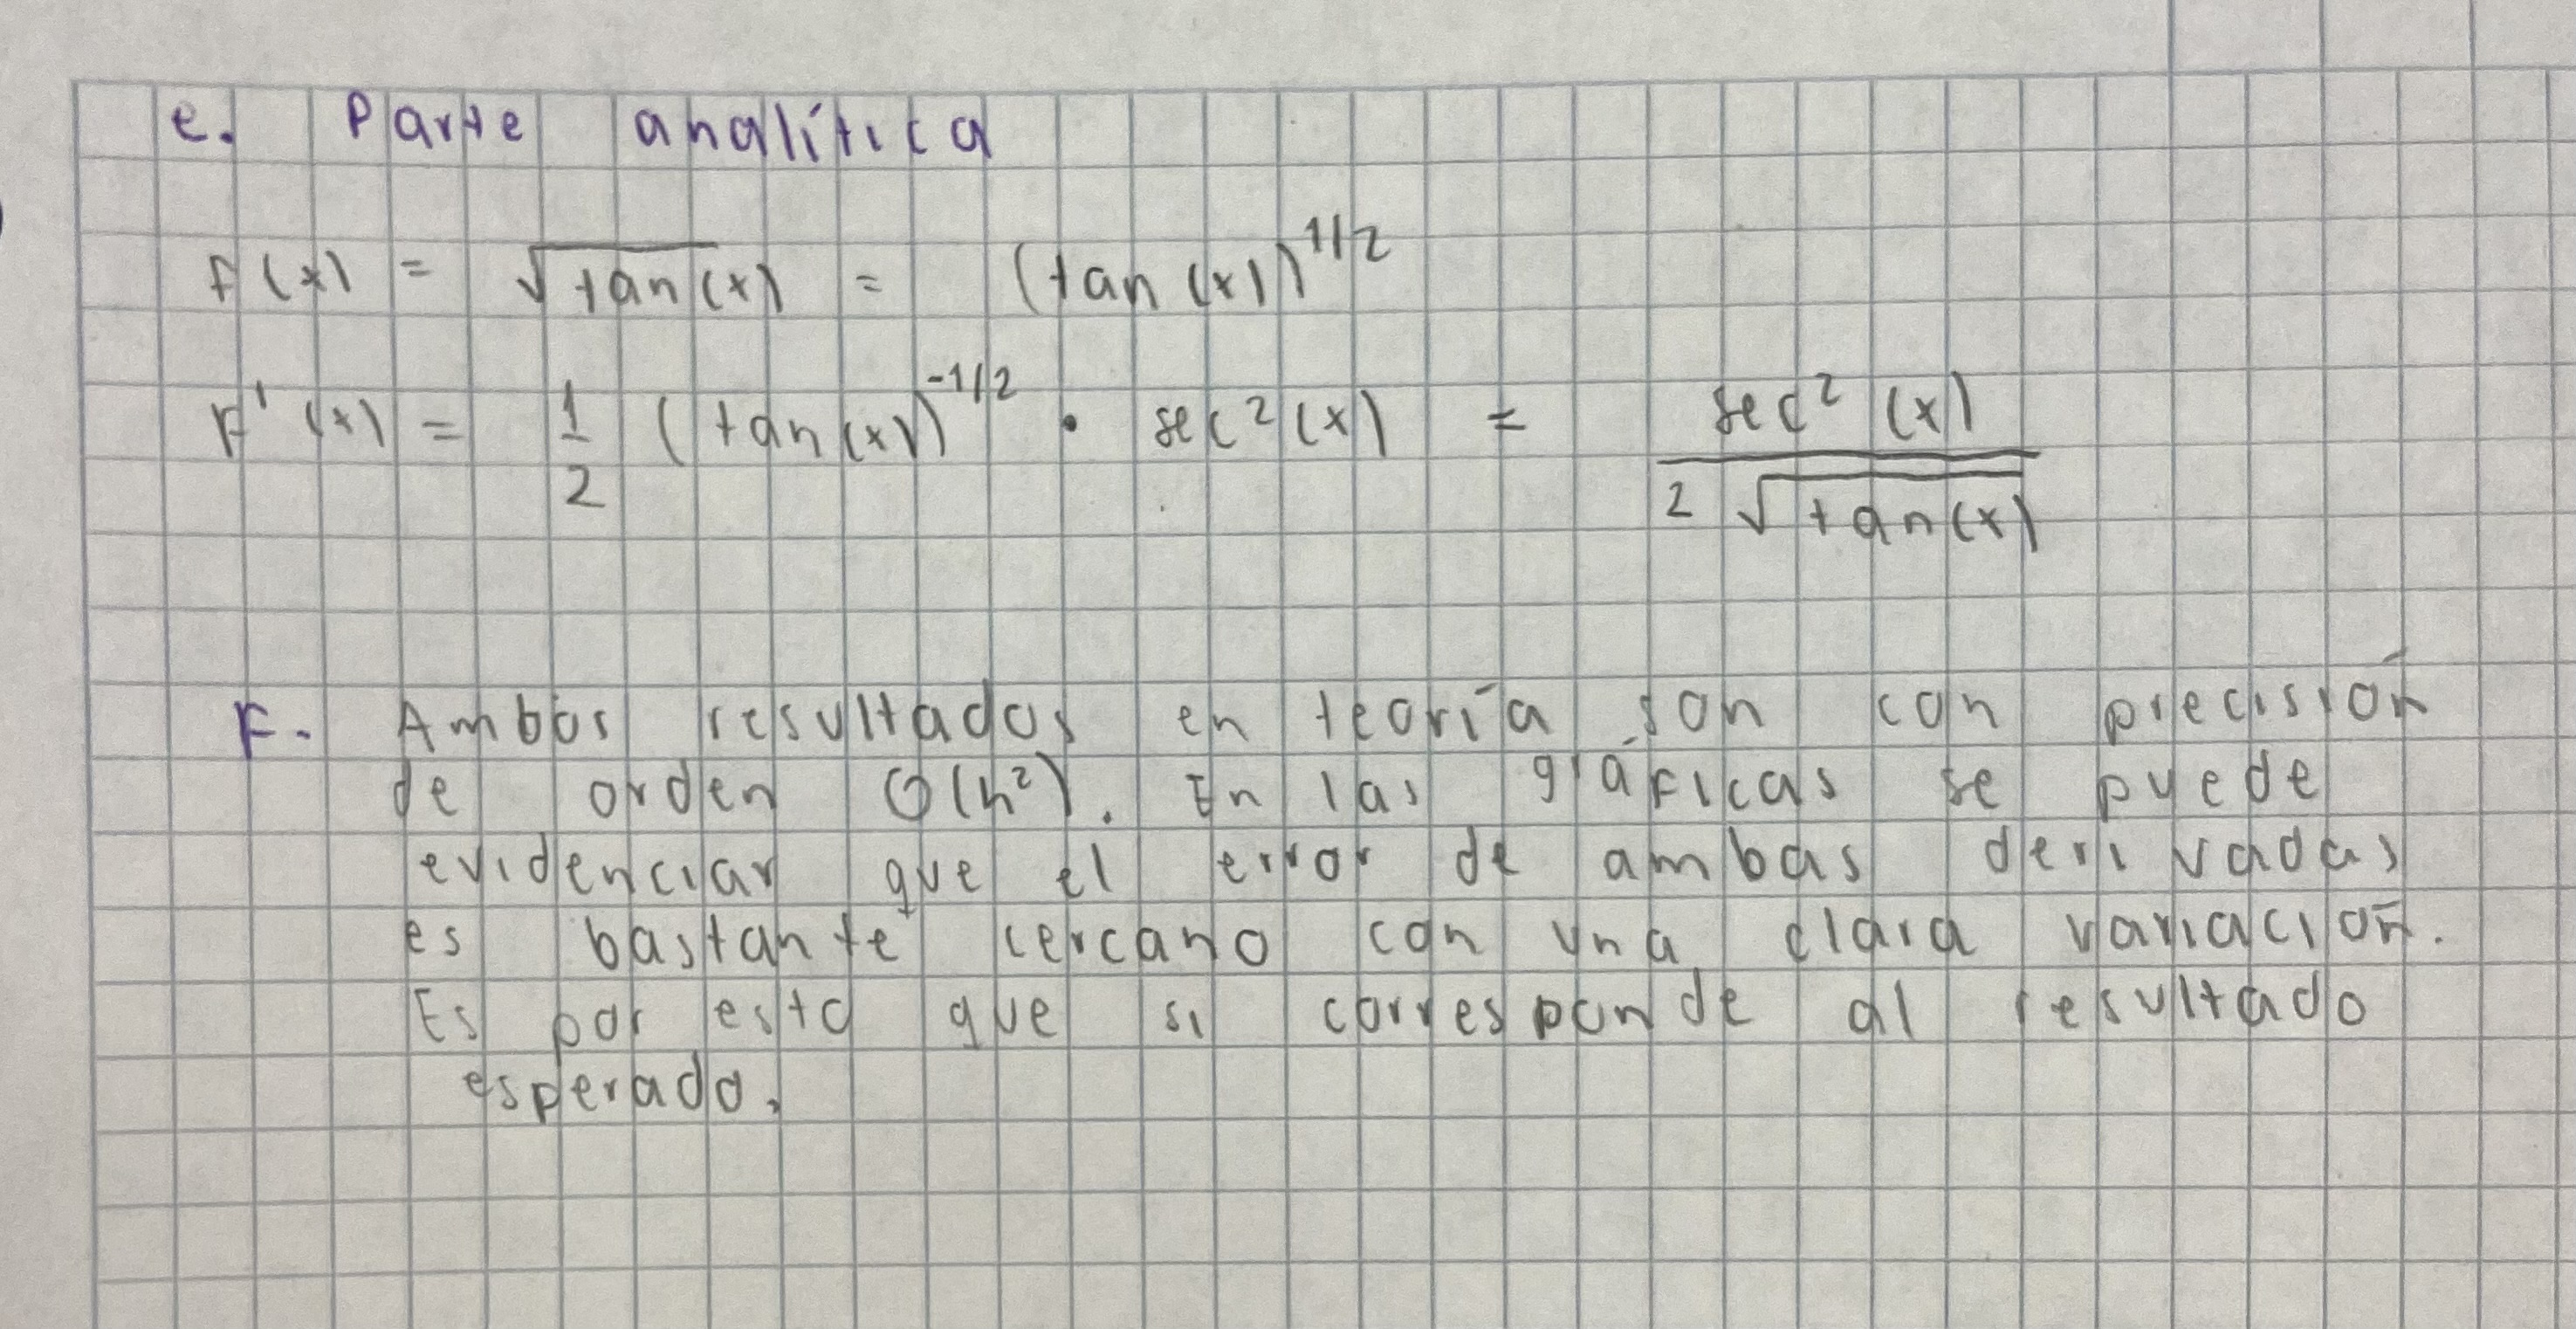 e. Parte analítica
f(x) = √tan(x) = (tan(x))^1/2
F'(x) = 1/2 (tan(x))^-1/2 • sec²(x) = sec²(x) / 2√tan(x)
F. Ambos resultados en teoría son con precisión
de orden O(h²). En las gráficas se puede
evidenciar que el error de ambas derivadas
es bastante cercano con una clara variación.
Es por esto que si corresponde al resultado
esperado.